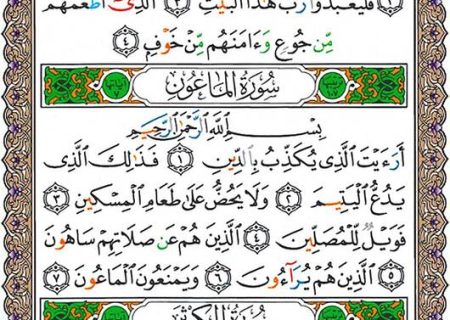 ٢ فَلْيَعْبُدُوا۟ رَبَّ هَٰذَا ٱلْبَيْتِ ٣ ٱلَّذِىٓ أَطْعَمَهُم
مِّن جُوعٍ وَءَامَنَهُم مِّنْ خَوْفٍ ٤
سُورَةُ المَاعُون
بِسْمِ ٱللَّهِ ٱلرَّحْمَٰنِ ٱلرَّحِيمِ
أَرَءَيْتَ ٱلَّذِى يُكَذِّبُ بِٱلدِّينِ ١ فَذَٰلِكَ ٱلَّذِى
يَدُعُّ ٱلْيَتِيمَ ٢ وَلَا يَحُضُّ عَلَىٰ طَعَامِ ٱلْمِسْكِينِ ٣
فَوَيْلٌ لِّلْمُصَلِّينَ ٤ ٱلَّذِينَ هُمْ عَن صَلَاتِهِمْ سَاهُونَ
٥ ٱلَّذِينَ هُمْ يُرَآءُونَ ٦ وَيَمْنَعُونَ ٱلْمَاعُونَ ٧
سُورَةُ الكَوْثَر